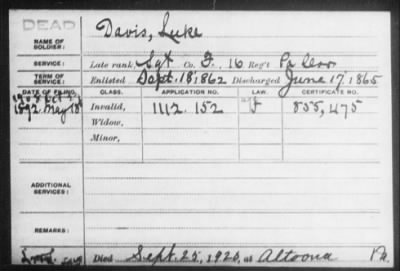 DEAD
Davis, Luke
NAME OF
SOLDIER:
SERVICE: Late rank, Sgt Co. F, 16 Reg't Pa Cav
TERM OF
SERVICE: Enlisted Sept. 18, 1862 Discharged June 17, 1865
DATE OF FILING. CLASS. APPLICATION NO. LAW. CERTIFICATE NO.
1892 May 18 Invalid, 1112.152 855,475
Widow,
Minor,
ADDITIONAL
SERVICES:
REMARKS:
Died Sept. 25, 1920, at Altoona Pa.